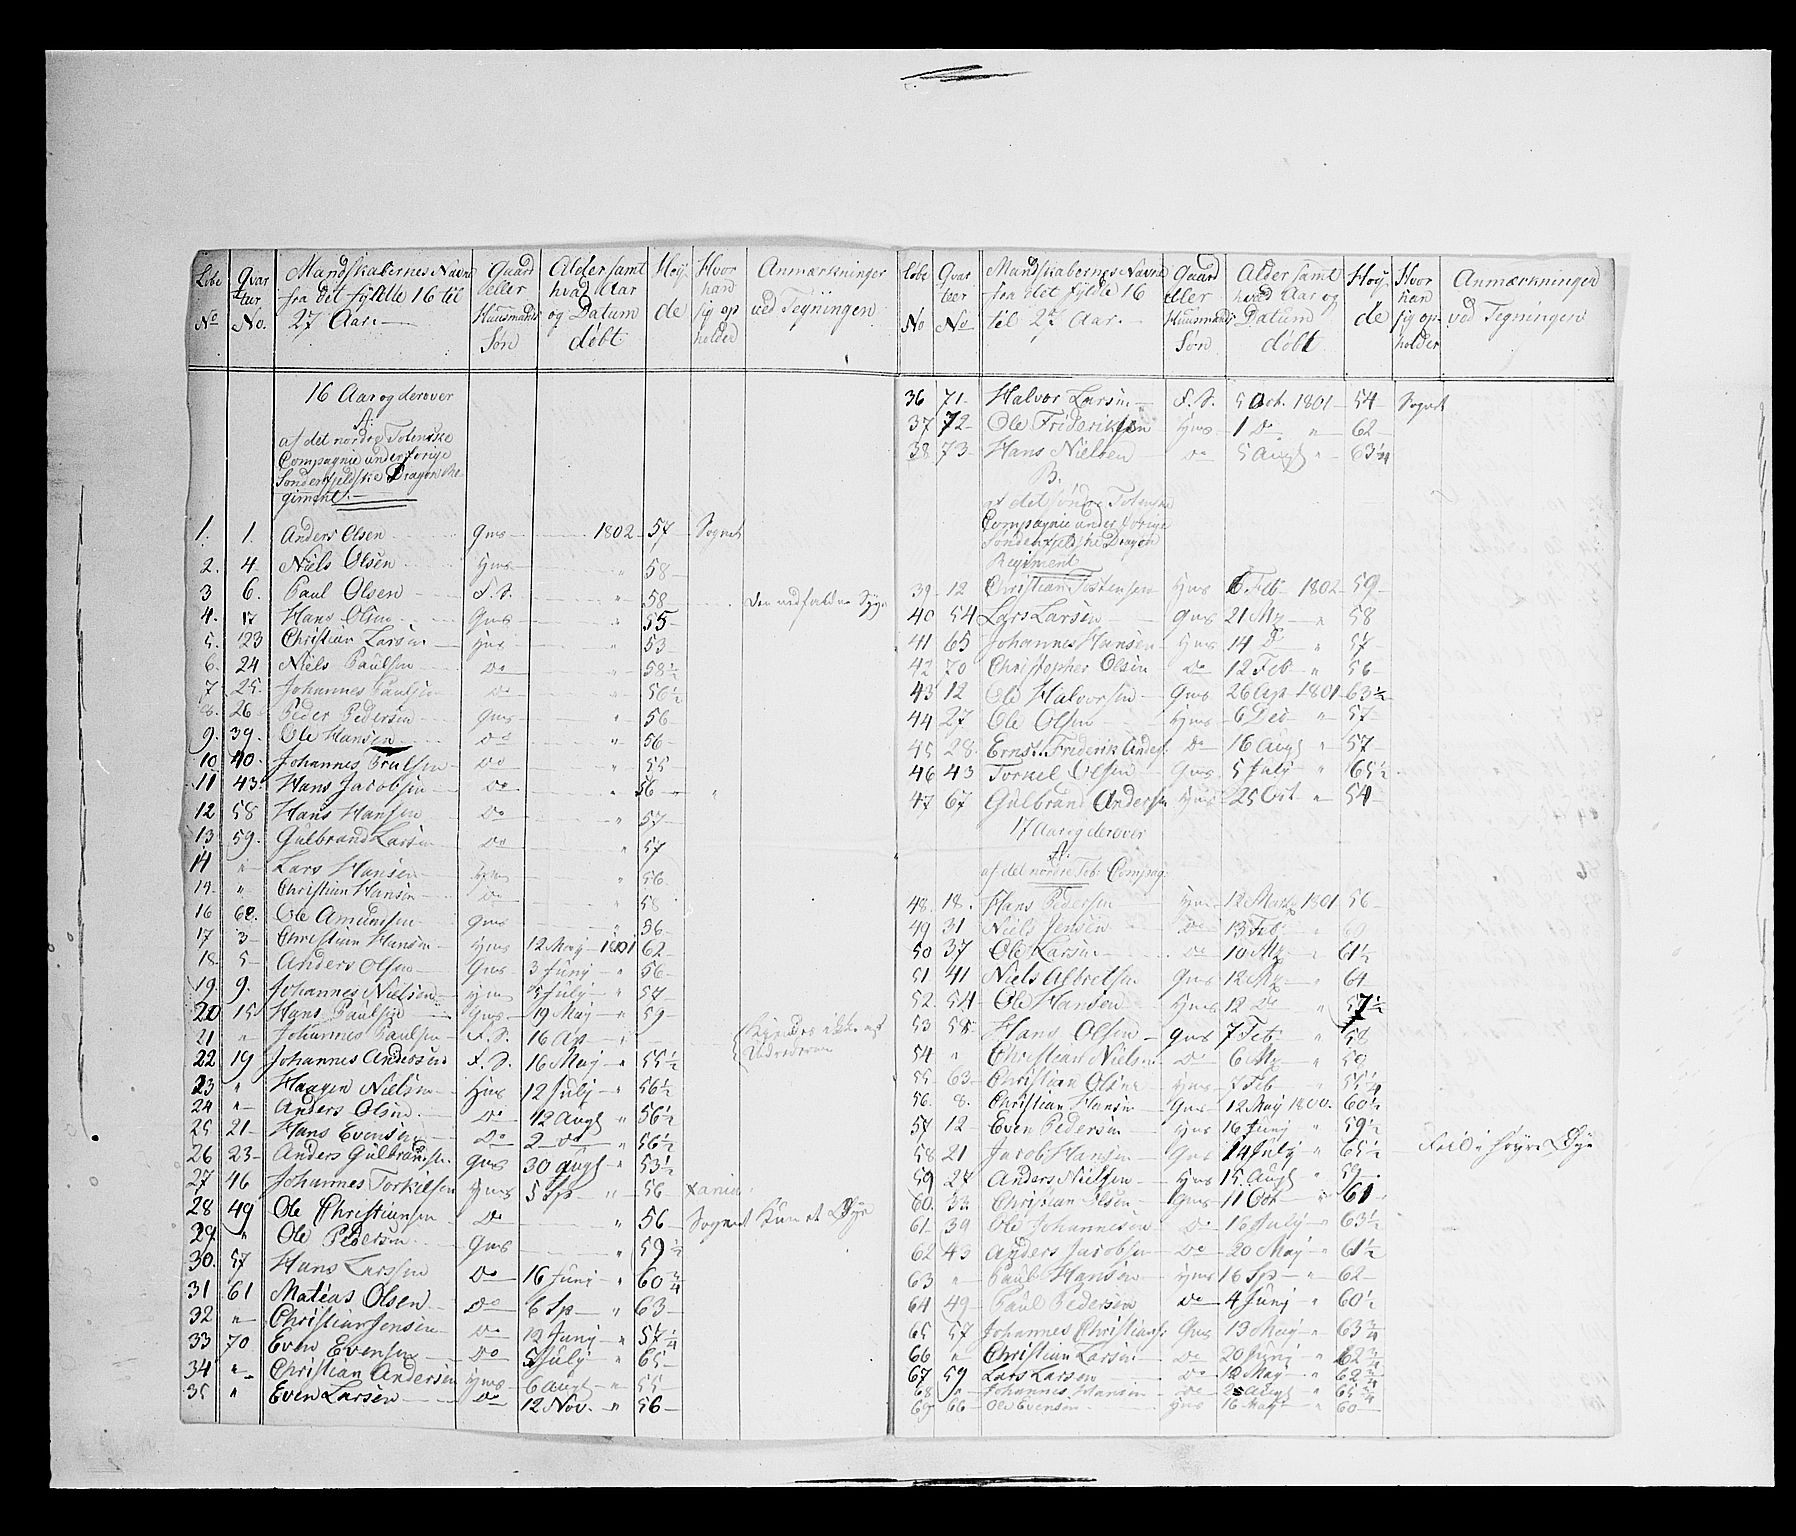 Løbe No | Qvarteer No. | Mandskabernes Navne fra det fyldte 16 til 27 Aar. | Gaard eller Huusmands Søn | Alder samt hvad Aar og Datum døbt | Høyde | Hvor han sig opholder | Anmærkninger ved Tegningen
16 Aar og derover
A.
af det nordre Totenske
Compagnie under forige
Søndenfieldske Dragon Re-
giment.
1. 1. Anders Olsen Gms 1802 57 Sognet
2. 4. Niels Olsen Hms " 58
3 6. Paul Olsen S. S. " 58
4. 17 Hans Olsen Gms " 55
5. 23 Christian Larsen Hms " 53
6. 24 Niels Paulsen Do " 58½
7 25. Johannes Paulsen Do " 56½
8. 26 Peder Pedersen Gms " 56
9. 39. Ole Hansen Do " 56
10 40. Johannes Do " 55
11 43. Hans Jacobsen Do " 56 "
12 58 Hans Hansen Do " 57
13 59. Gulbrand Larsen Do " 57
14 " Lars Hansen Hms " 56
14. " Christian Hansen Do " 58
16 62. Ole Amundsen Gms " 56
17 3 Christian Hansen Hms 12 May 1801 62
18. 5 Anders Olsen Gms 3 Junj " 56
19. 9. Johannes Nielsen Hms July " 57
20 15 Hans Paulsen Gms 19 May " 59
21 " Johannes Paulsen S. S. 16 Ap "
22 19 Johannes Andersen S. S. 16 May " 55½
23 " Haagen Nielsen Hms 12 July " 56½
24 " Anders Olsen Do 12 Augt " 56½
25 21 Hans Evensen Do 2 Do " 56½
26 23 Anders Gulbrands. Gms 30 Augt " 53½
27 46 Johannes Torkilsen Hms 5 Sp " 56
28 49 Ole Christiansen Do " 56 Sognet Kun et Øye
29 " Ole Pedersen Gms " 59½
30. 57 Hans Larssen Do 16 Junj " 60¾
31 61 Matias Olsen Do 6 Sp " 63
32 " Christian Jensen Do 12 Junj " 57¼
33 70 Even Evensen Do 5 July " 65
34 " Christian Andersen Hms 6 Augt " 55
35 " Even Larsen Do 12 Nov. " 56
Løbe No | Qvarteer No | Mandskabernes Navne fra det fyldte 16 til 27 Aar. | Gaard eller Huusmands Søn | Alder samt hvad Aar og Datum døbt | Høyde | Hvor han sig opholder | Anmærkningen ved Tegningen
36 71 Halvor Larsen S. S. 5 Oct. 1801 54 Sognet
37 72 Ole Frideriksen Hms 1 Do " 62
38 73 Hans Nielsen Do 5 Augt " 63¼
B.
af det søndre Totenske
Compagnie under forige
Søndenfieldske Dragon
Regiment
39 12 Christian Hms 6 Feb 1802 59
40 54 Lars Larsen Gms 21 Mz " 58
41 65 Johannes Hansen Hms 14 D " 57
42 70 Christopher Olsen Do 12 Feb " 56
43 12 Ole Halvorsen Gms 26 Apr 1801 63½
44 27 Ole Olsen Hms 6 Dec " 57
45 28. Ernst Friderik Anders. Do 16 Augt " 57
46 43 Torkel Olsen Gms 5 July " 65½
47 67 Gulbrand Andersen Hms 25 Oct " 54
17 Aar og derover
A.
af det nordre Tot. Compag:
48. 18. Hans Pedersen Hms 12 1801 56
49 31 Niels Jensen Do 13 Feb "
50 37 Ole Larsen Do 10 Mz " 61½
51 41 Niels Gms 12 Mz " 61
52. 54 Ole Hansen Hms 12 Do " 57½
53 58 Hans Olsen Gms 7 Feb " 58
54 " Christian Nielsen Do 6 Mz " 59
55 63 Christian Olsen Hms Feb " 55¼
56. 8. Christian Hansen Gms 12 May 1800. 60½
57 12 Even Pedersen Hms 16 Junj " 59½
58 21 Jacob Hansen Gms 14 July " 65½ høyre Øye
59 27 Anders Nielsen Hms 15 Augt " 59
60. 32 Christian Olsen Gms 11 Oct " 61
61 39 Ole Johannesen Do 16 July " 63½
62 43 Anders Jacobsen Do 20 May " 61½
63 " Paul Hansen Hms 16 Sp " 62
64 49 Paul Pedersen Do 4 Junj " 60½
65 57 Johannes Christians. Gms 13 May " 63¾
66 " Christian Larsen Do 20 Junj " 62¾
67 59 Lars Larsen Do 12 May " 62¾
68 " Johannes Hansen Do Augt " 65¼
69 66 Ole Evensen Hms 16 May " 60